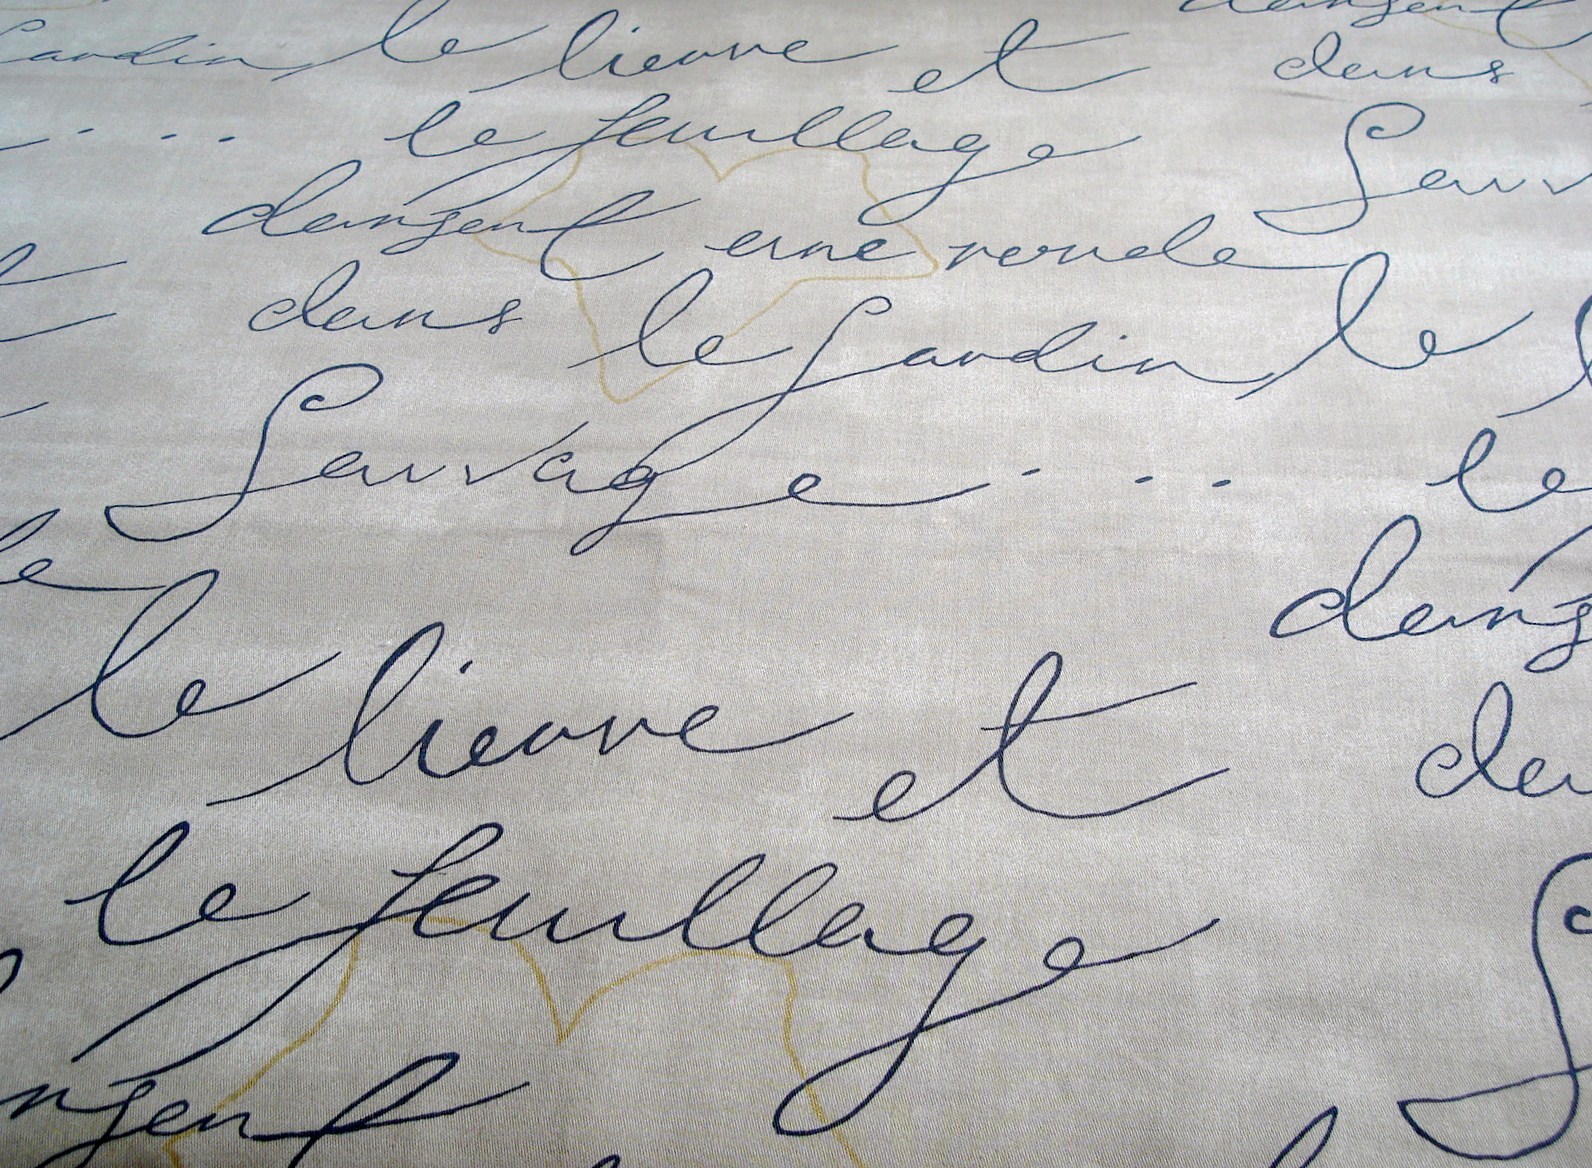 dansent
Jardin le lierre et dans
... le feuillage Sauv
dansent une ronde
dans le Jardin le
Sauvage ... le
le lierre et dans
le feuillage
nsent